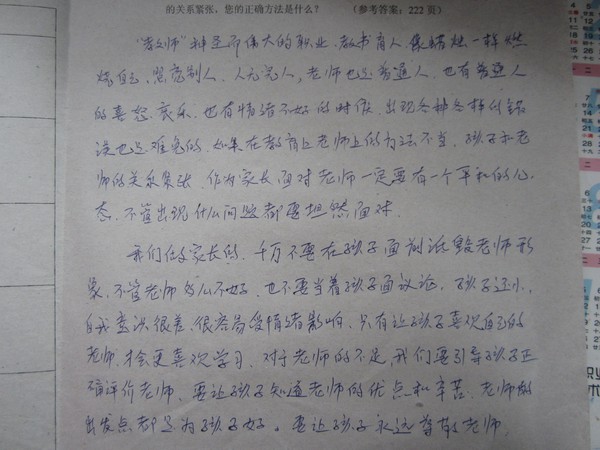 的关系紧张,您的正确方法是什么? (参考答案:222 页)
"教师"神圣而伟大的职业,教书育人,像蜡烛一样燃
烧自己,照亮别人,人无完人,老师也是普通人,也有普通人
的喜怒哀乐,也有情绪不好的时候,出现各种各样的错
误也是难免的,如果在教育上老师上的方法不当,孩子和老
师的关系紧张,作为家长面对老师一定要有一个平和的心
态,不管出现什么问题都要坦然面对.
我们做家长的,千万不要在孩子面前诋毁老师形
象,不管老师多么不好,也不要当着孩子面议论,孩子还小,
自我意识很差,很容易受情绪影响,只有让孩子喜欢自己的
老师,才会更喜欢学习,对于老师的不足,我们要引导孩子正
确评价老师,要让孩子知道老师的优点和辛苦,老师的
出发点都是为孩子好。要让孩子永远尊敬老师.